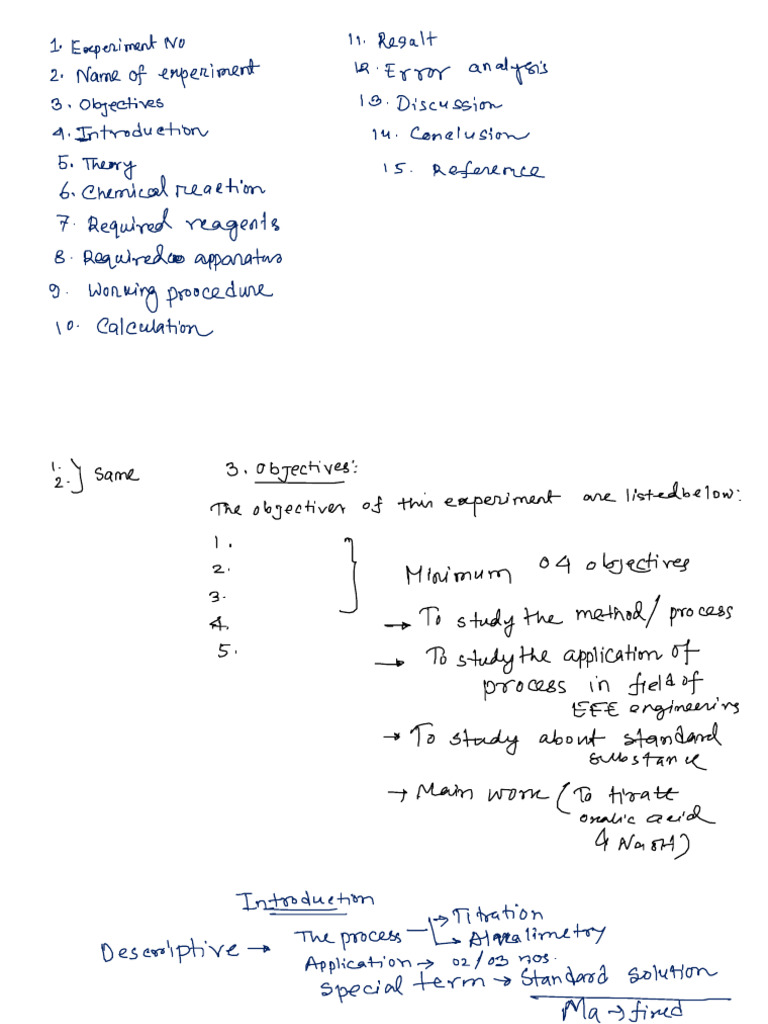 1. Experiment No
2. Name of experiment
3. Objectives
4. Introduction
5. Theory
6. Chemical reaction
7. Required reagents
8. Required apparatus
9. Working proocedure
10. Calculation
11. Regalt
12. Error analysis
13. Discussion
14. Conclusion
15. Reference
1.
2. } Same
3. Objectives:
The objectives of this experiment are listed below:
1.
2.
3.
4.
5.
Minimum 04 objectives
→ To study the method/process
→ To study the application of
process in field of
EEE engineering
→ To study about standard
substance
→ Main work (To tirate
oxalic acid
& NaOH)
Introduction
Descriptive → The process → Titration
→ Alkalimetry
Application → 02/03 nos.
Special term → Standard solution
Ma → fixed